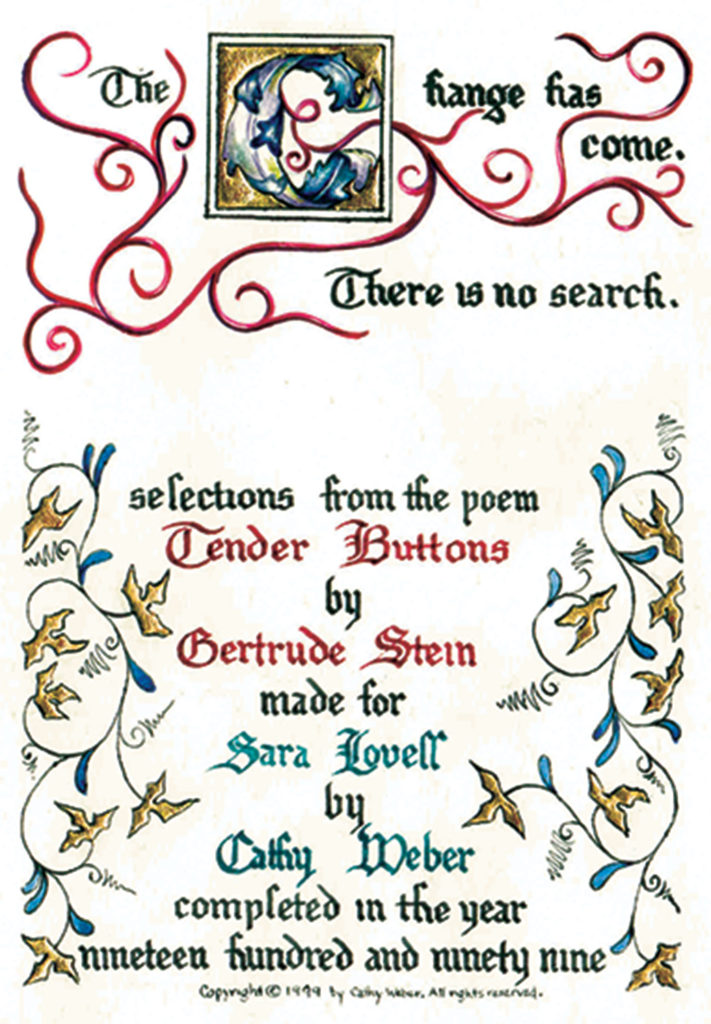 The Change has
come.
There is no search.
selections from the poem
Tender Buttons
by
Gertrude Stein
made for
Sara Lovell
by
Cathy Weber
completed in the year
nineteen hundred and ninety nine
Copyright © 1999 by Cathy Weber. All rights reserved.